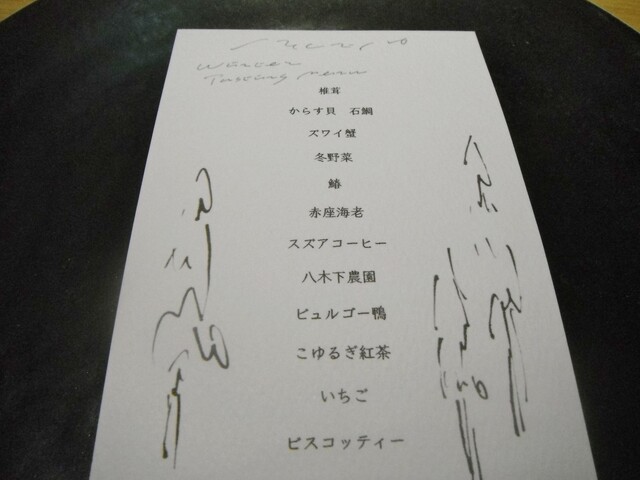 Winter
Tasting menu
椎茸
からす貝　石鯛
ズワイ蟹
冬野菜
鰆
赤座海老
スズアコーヒー
八木下農園
ビュルゴー鴨
こゆるぎ紅茶
いちご
ビスコッティー